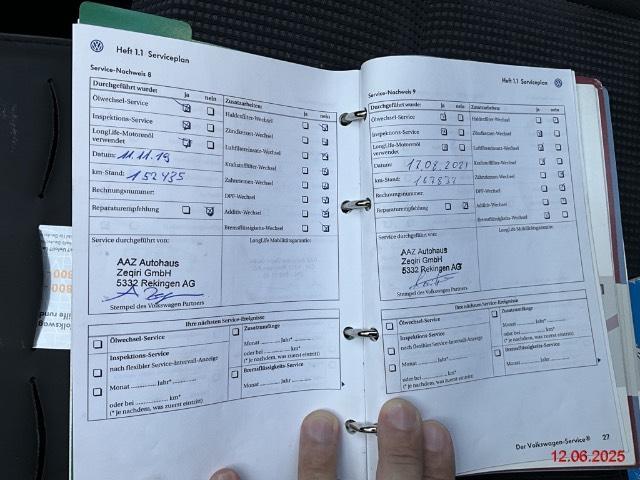 Heft 1.1 Serviceplan
Service-Nachweis 8
Durchgeführt wurde: ja nein Zusatzarbeiten: ja nein
Ölwechsel-Service Haldexfilter-Wechsel
Inspektions-Service Zündkerzen-Wechsel
LongLife-Motorenöl verwendet Luftfiltereinsatz-Wechsel
Datum: 11.11.19 Kraftstofffilter-Wechsel
km-Stand: 152435 Zahnriemen-Wechsel
Rechnungsnummer: DPF-Wechsel
Reparaturempfehlung Additiv-Wechsel
Bremsflüssigkeits-Wechsel
Service durchgeführt von: LongLife Mobilitätsgarantie:
AAZ Autohaus
Zeqiri GmbH
5332 Rekingen AG
Stempel des Volkswagen Partners
Ihre nächsten Service-Ereignisse
Ölwechsel-Service
Inspektions-Service
nach flexibler Service-Intervall-Anzeige
Monat Jahr*
oder bei km*
(* je nachdem, was zuerst eintritt)
Monat Jahr*
oder bei km*
(* je nachdem, was zuerst eintritt)
Bremsflüssigkeits-Service
Monat Jahr*
Heft 1.1 Serviceplan
Service-Nachweis 9
Durchgeführt wurde: ja nein Zusatzarbeiten: ja nein
Ölwechsel-Service Haldexfilter-Wechsel
Inspektions-Service Zündkerzen-Wechsel
LongLife-Motorenöl verwendet Luftfiltereinsatz-Wechsel
Datum: 17.08.2021 Kraftstofffilter-Wechsel
km-Stand: Zahnriemen-Wechsel
Rechnungsnummer: DPF-Wechsel
Reparaturempfehlung Additiv-Wechsel
Bremsflüssigkeits-Wechsel
Service durchgeführt von: LongLife Mobilitätsgarantie:
AAZ Autohaus
Zeqiri GmbH
5332 Rekingen AG
Stempel des Volkswagen Partners
Ihre nächsten Service-Ereignisse
Ölwechsel-Service
Inspektions-Service
nach flexibler Service-Intervall-Anzeige
Monat Jahr*
oder bei km*
(* je nachdem, was zuerst eintritt)
Monat Jahr*
oder bei km*
(* je nachdem, was zuerst eintritt)
Bremsflüssigkeits-Service
Monat Jahr*
Der Volkswagen-Service® 27
12.06.2025